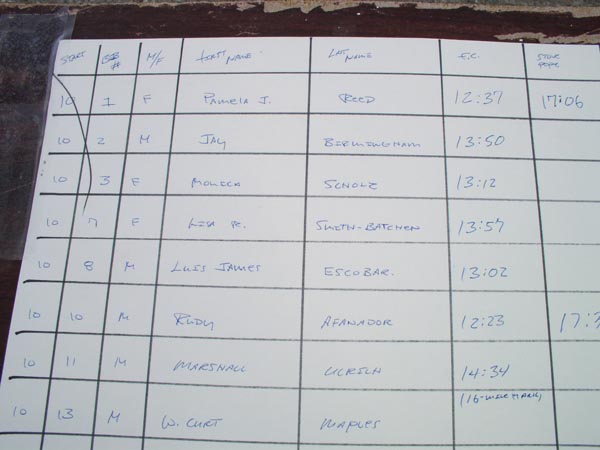 START BIB # M/F FIRST NAME LAST NAME F.C. STOVE PIPE
10 1 F PAMELA J. REED 12:37 17:06
10 2 M JAY BIRMINGHAM 13:50
10 3 F MONICA SCHOLZ 13:12
10 7 F LISA SMITH-BATCHEN 13:57
10 8 M LUIS JAMES ESCOBAR. 13:02
10 10 M RUDY AFANADOR 12:23
10 11 M MARSHALL ULRICH 14:34
10 13 M W. CURT MAPLES (16-MILE MARK)